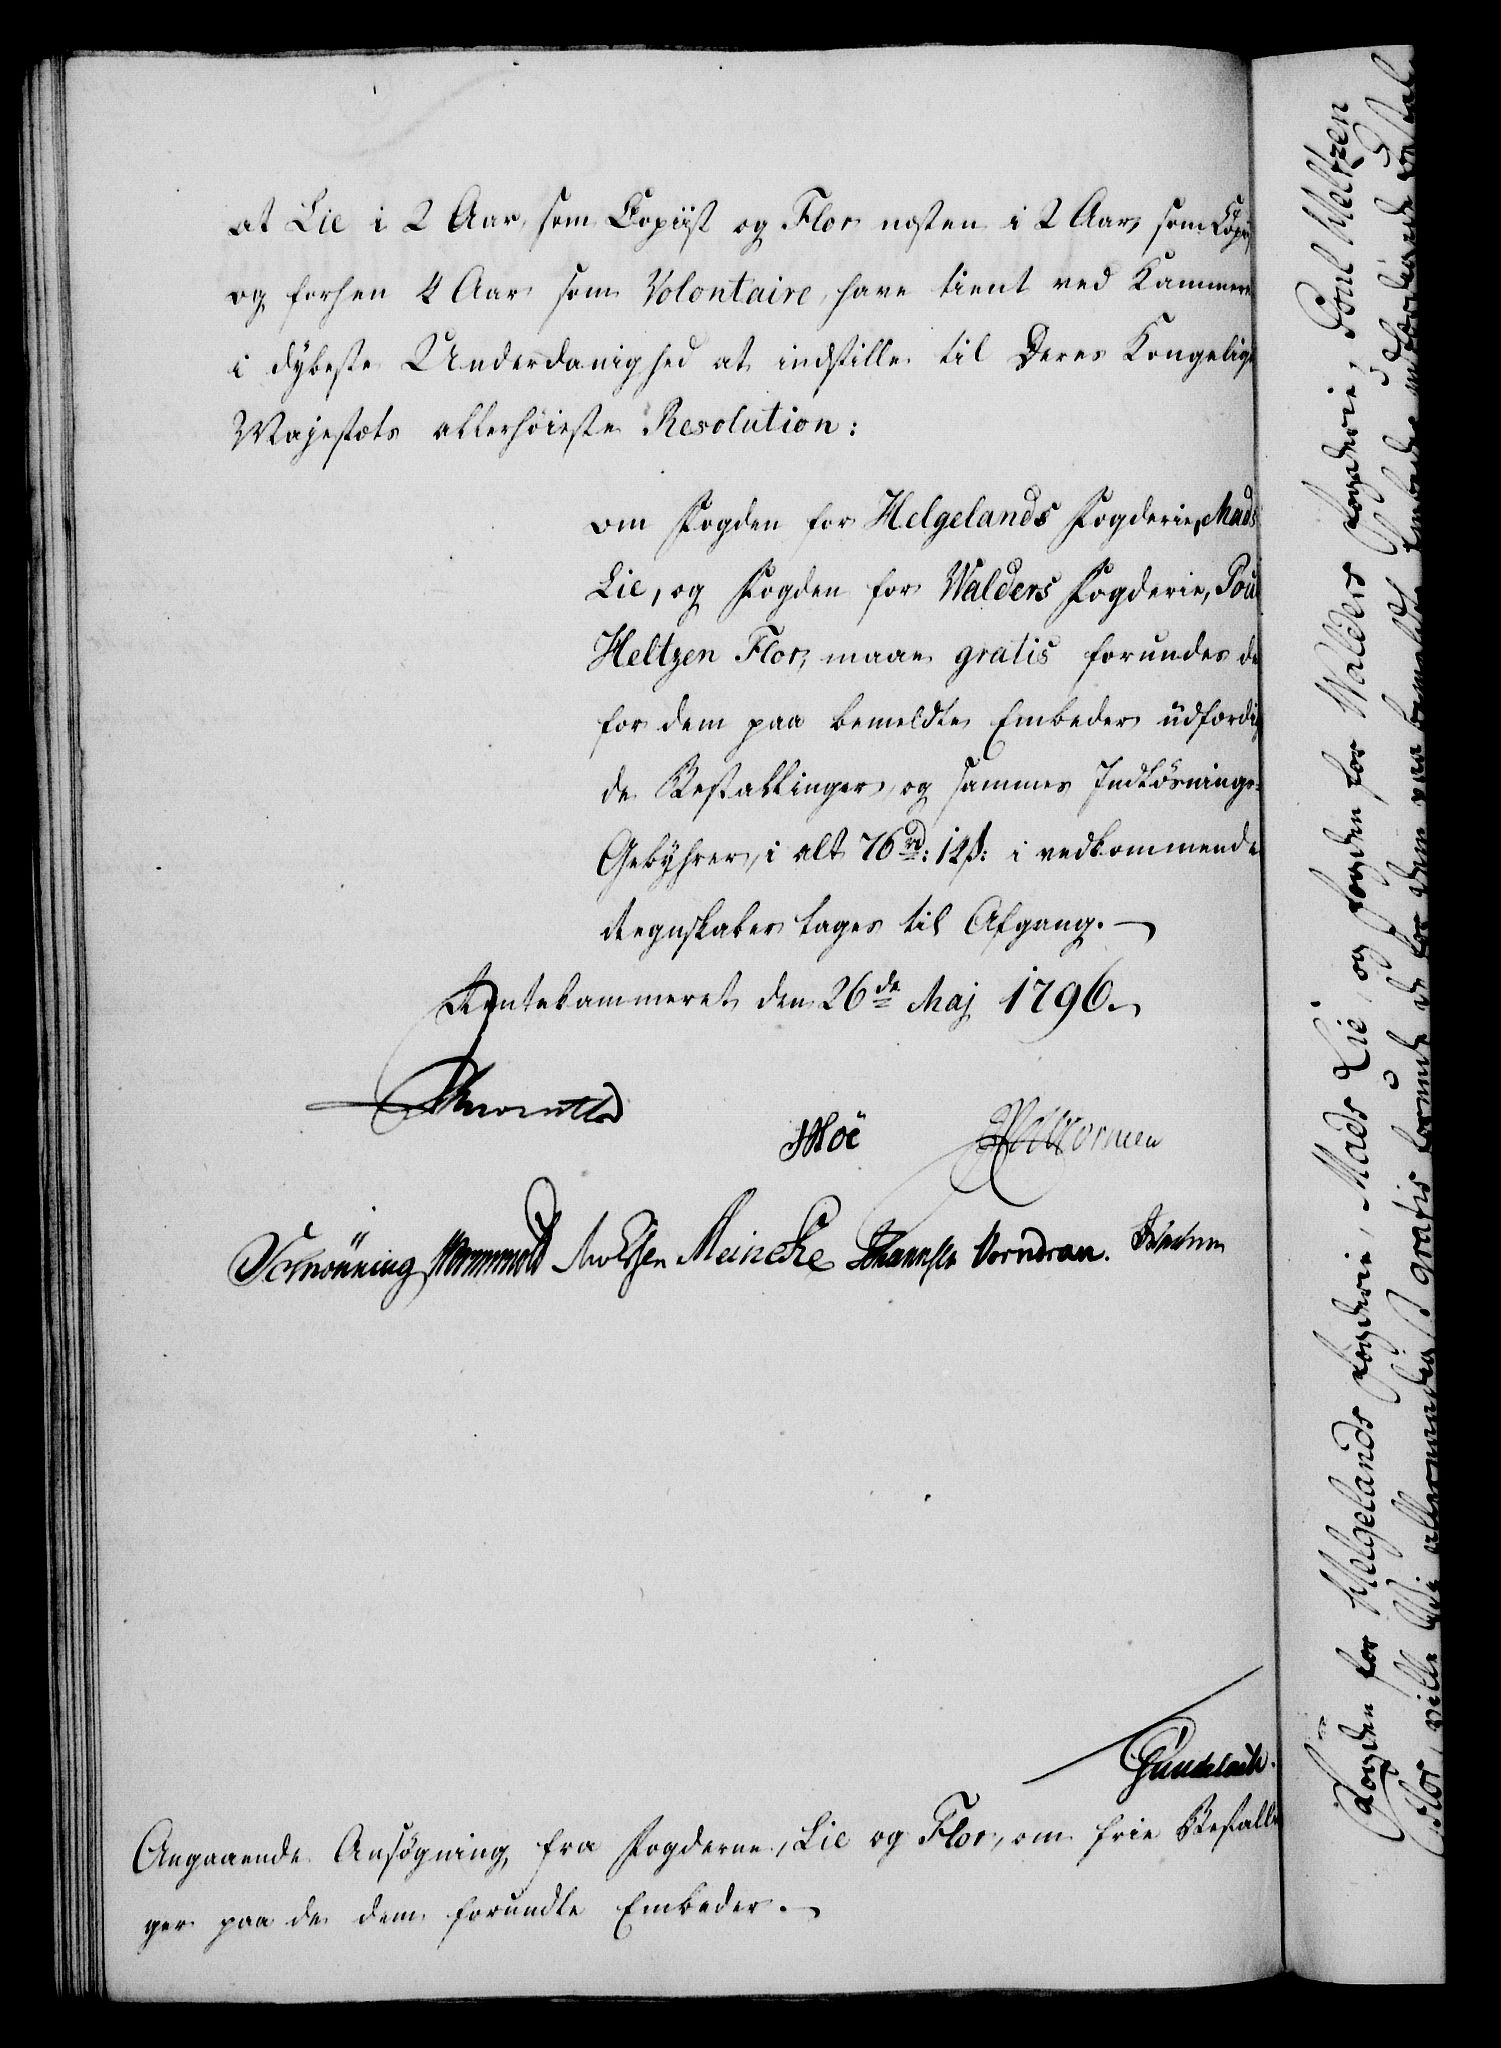 at Lie i 2 Aar, som Copiist og Flor næsten i 2 Aar, som Copi
og forhen 4 Aar som Volontaire, have tient ved Kammere
i dybeste Underdanighed at indstille til Deres Kongelige
Majestæts allerhöieste Resolution:
om Fogden for Helgelands Fogderie, Mads
Lie, og Fogden for Walders Fogderie, Poul
Heltzen Flor, maae gratis forundes de
for dem paa bemeldte Embeder udfærdig
de Bestallinger, og sammes Indlösnings-
Gebyhrer, i alt 76 rd: 12 ß: i vedkommende
Regnskaber tages til Afgang.
Rentekammeret den 26de Maj 1796.
Moë
Schrönning Wormskiold Meincke Johannsen Vorndran.
Gundelach.
Angaaende Ansögning fra Fogderne, Lie og Flor, om frie Bestallin
ger paa de dem forundte Embeder.
Fogden for Helgelands Fogderie, Mads Lie, og Fogden for Walders Fogderie, Poul Heltzen
Flor, ville Vi allernaadigst gratis forunde de for dem paa bemeldte